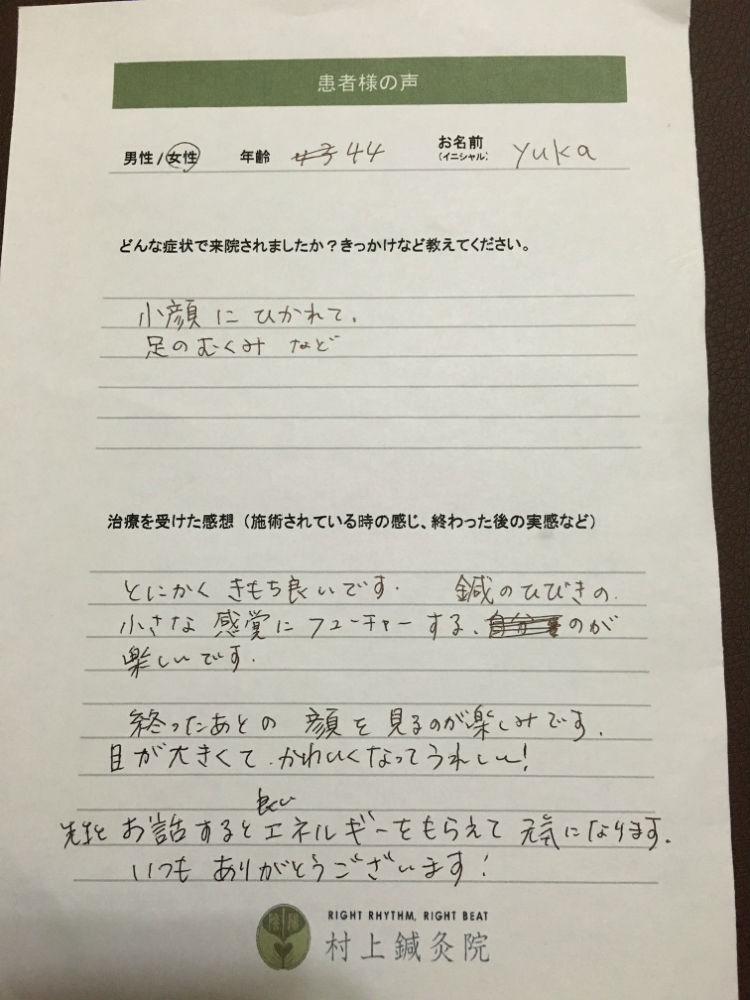 患者様の声
男性/女性 年齢 44 お名前(イニシャル) yuka
どんな症状で来院されましたか?きっかけなど教えてください。
小顔にひかれて.
足のむくみ など
治療を受けた感想(施術されている時の感じ、終わった後の実感など)
とにかく きもち良いです. 鍼のひびきの.
小さな 感覚に フューチャー する、のが
楽しいです.
終ったあとの 顔を 見るのが楽しみです.
目が大きくて.かわいくなってうれしい!
良い
先生と お話すると エネルギーをもらえて 元気になります.
いつも ありがとうございます!
RIGHT RHYTHM, RIGHT BEAT
村上鍼灸院